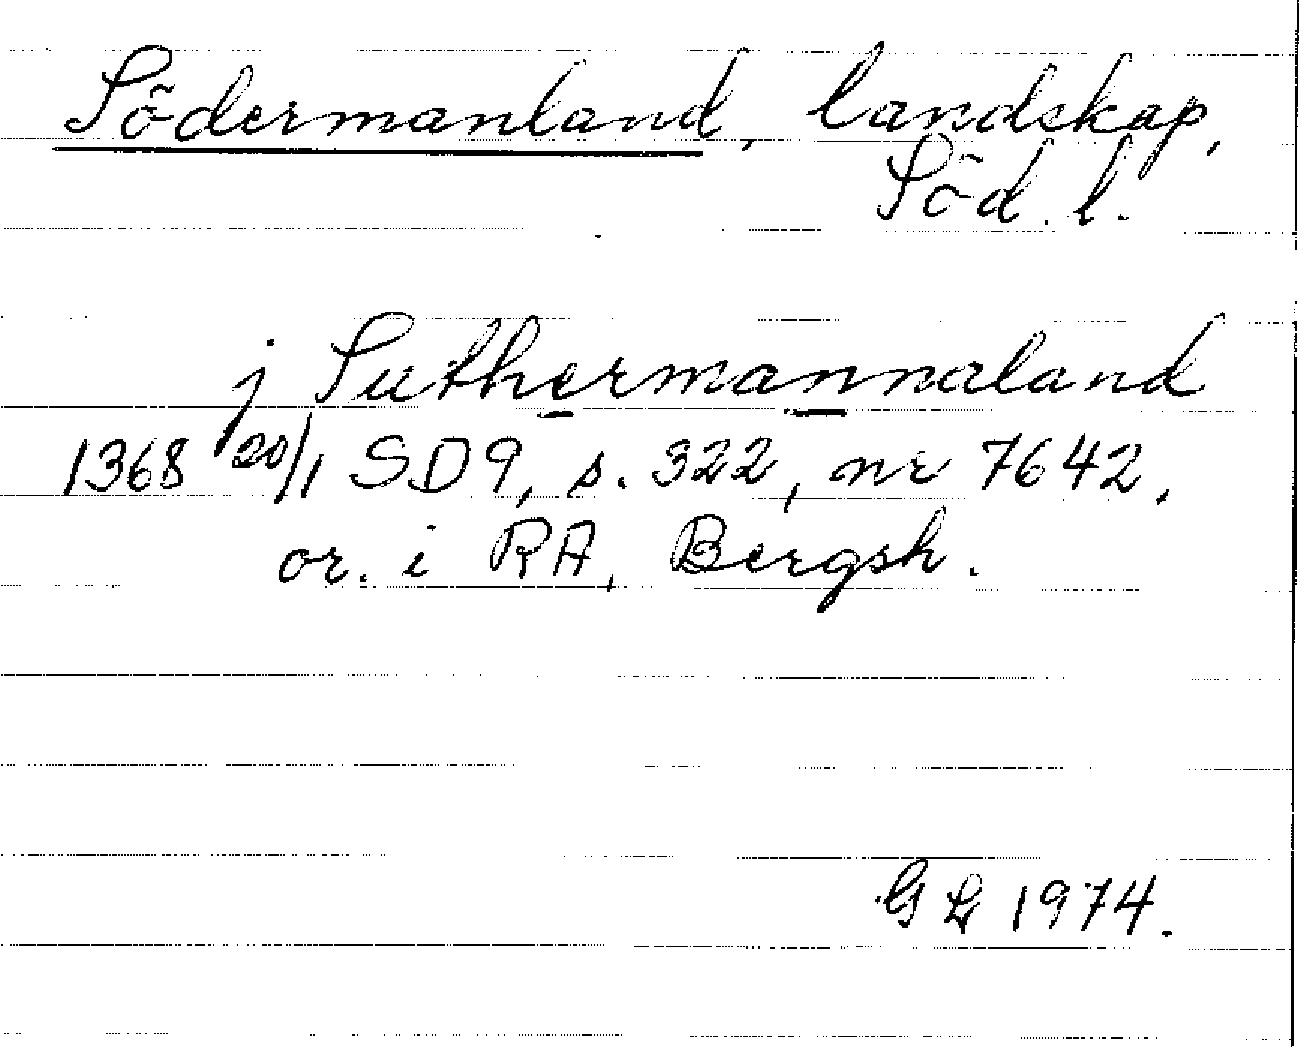 Södermanland, landskap,
Söd. l.
j Suthermannaland
1368 20/1 SD9, s. 322, nr 7642,
or. i RA, Bergsh.
GL 1974.